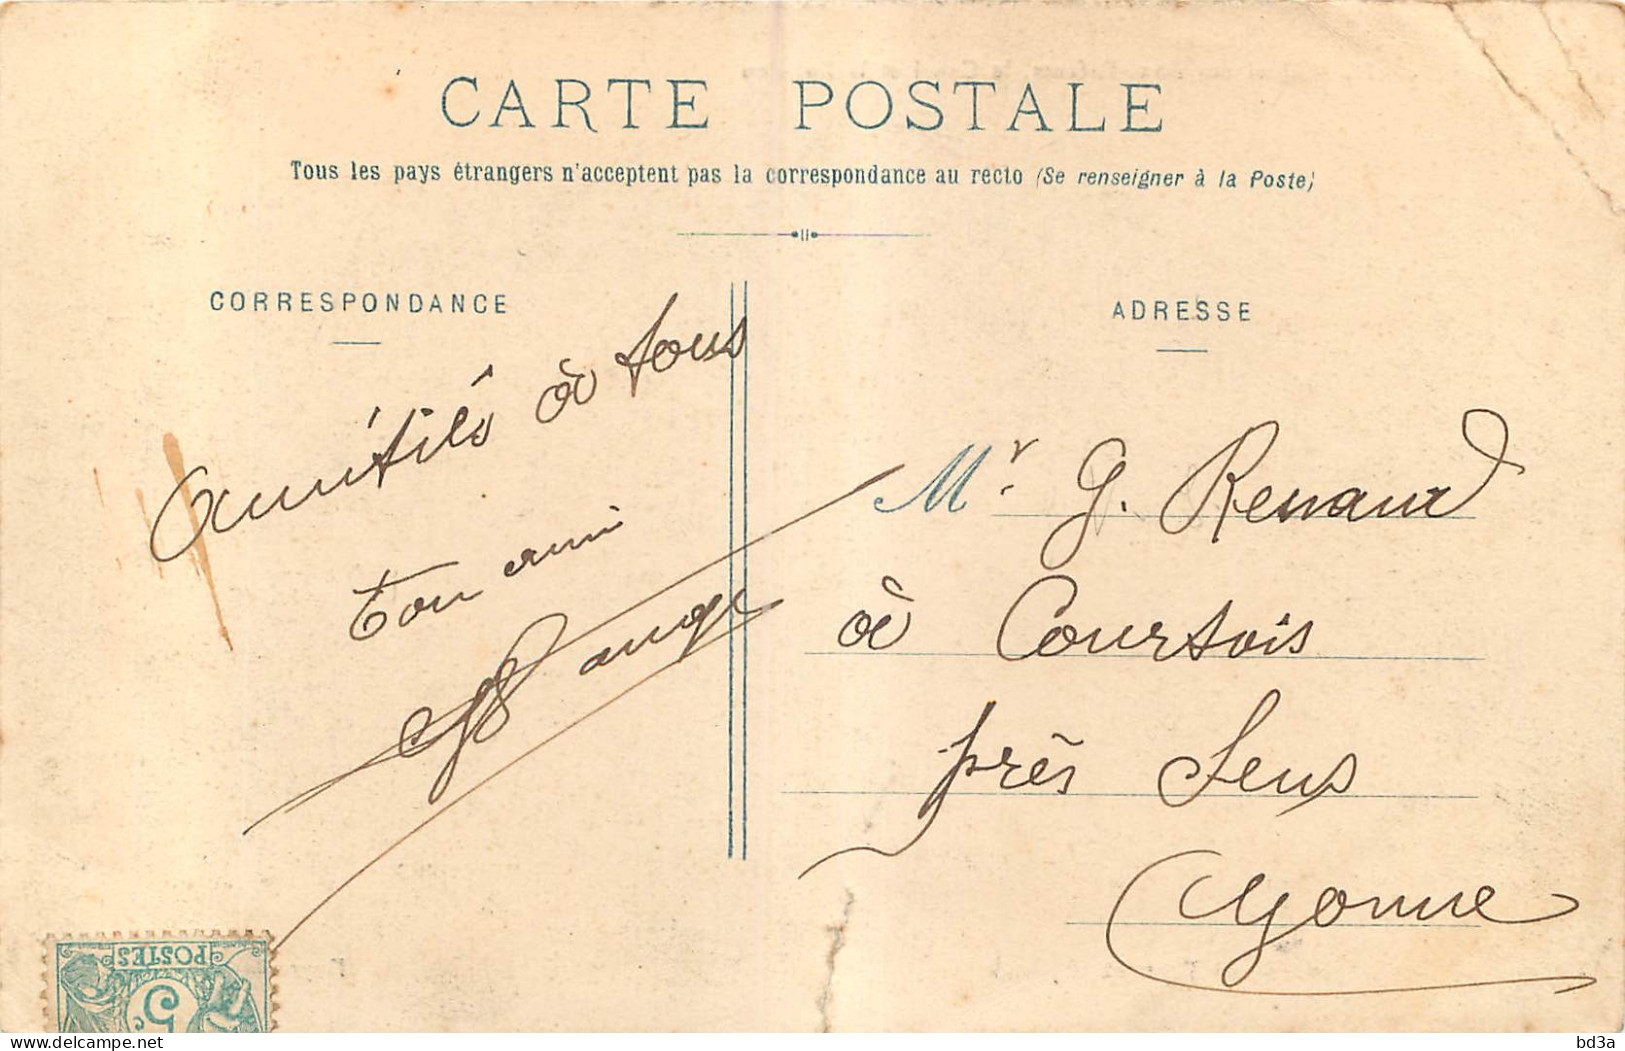 CARTE POSTALE
Tous les pays étrangers n'acceptent pas la correspondance au recto (Se renseigner à la Poste)
CORRESPONDANCE
Amitiés à tous
ton ami
ADRESSE
Mr. G. Renaud
à Courtois
près Sens
Yonne
POSTES
5c
delcampe.net
bd3a